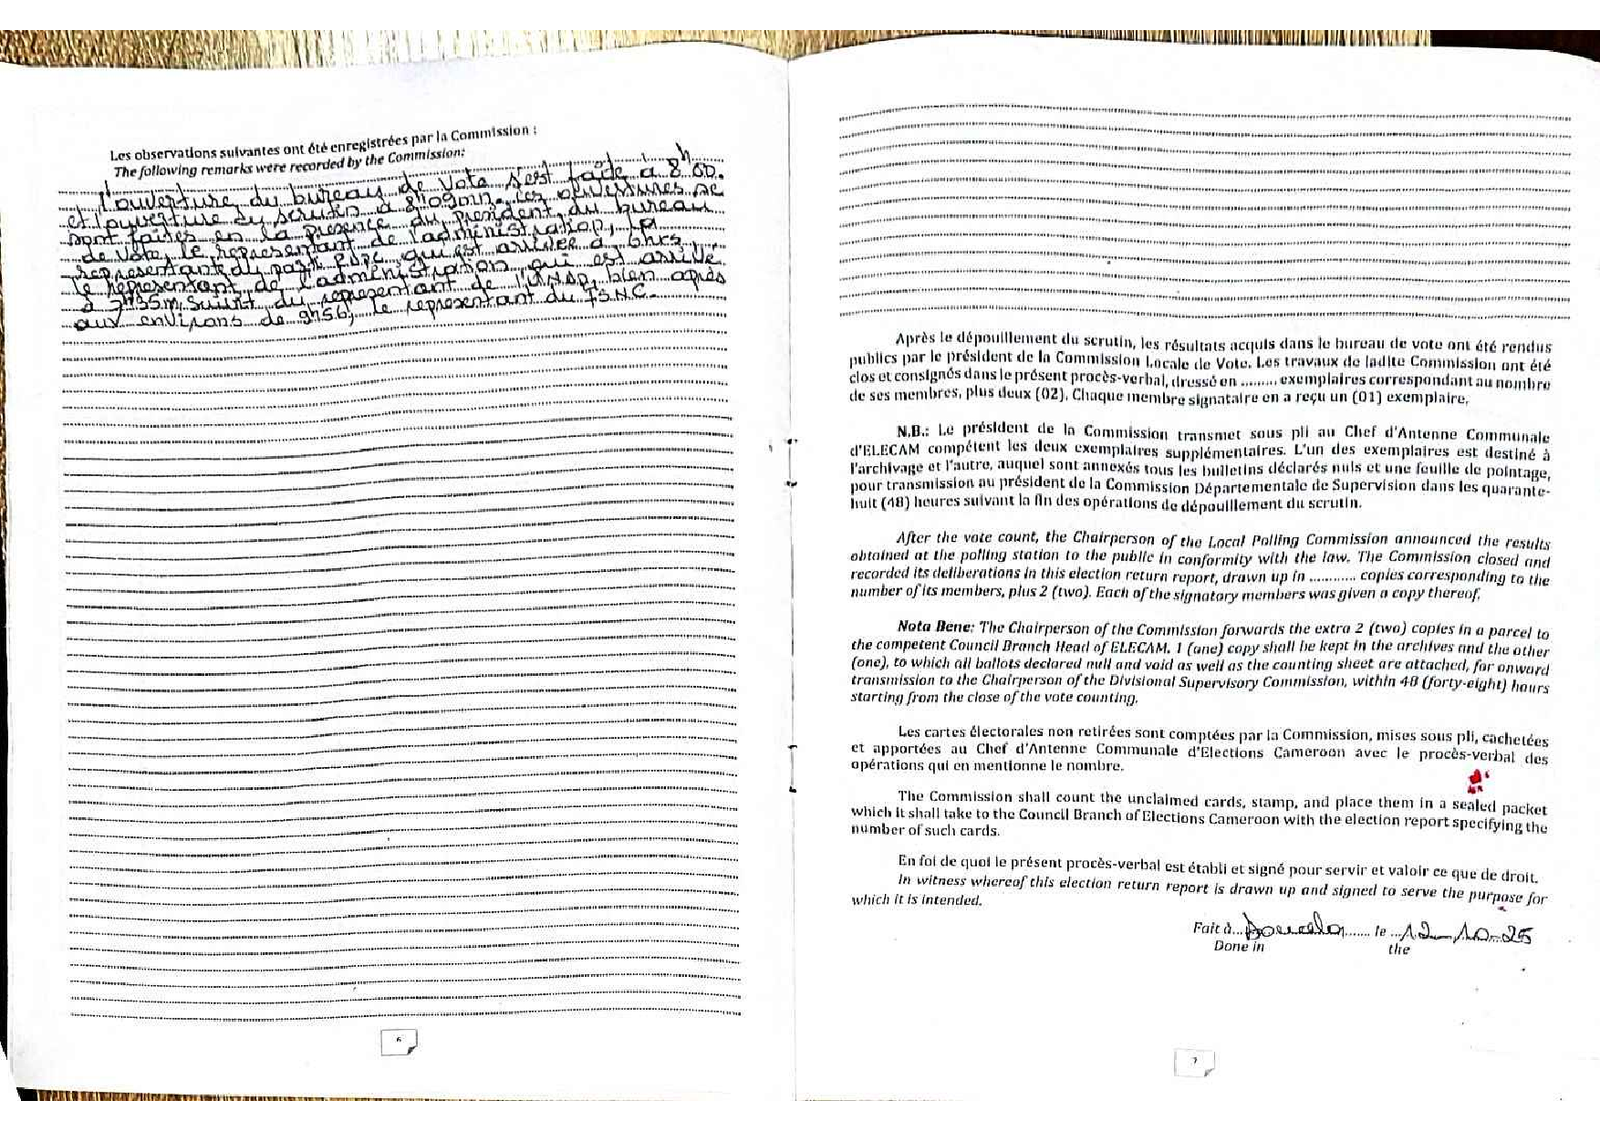 Les observations suivantes ont été enregistrées par la Commission :
The following remarks were recorded by the Commission:
l'ouverture du bureau de vote s'est faite à 8h00.
et l'ouverture du scrutin à les ouvertures se
sont faites en la présence du président du bureau
de vote, le représentant de l'administration, la
représentante du parti qui est arrivée à 6hrs,
le représentant de l'administration qui est arrivé
à 7h35m, Suivit du représentant de l'UNDP, bien après
aux environs de 9h56, le représentant du FSNC.
6
Après le dépouillement du scrutin, les résultats acquis dans le bureau de vote ont été rendus
publics par le président de la Commission Locale de Vote. Les travaux de ladite Commission ont été
clos et consignés dans le présent procès-verbal, dressé en ......... exemplaires correspondant au nombre
de ses membres, plus deux (02). Chaque membre signataire en a reçu un (01) exemplaire.
N.B.: Le président de la Commission transmet sous pli au Chef d'Antenne Communale
d'ELECAM compétent les deux exemplaires supplémentaires. L'un des exemplaires est destiné à
l'archivage et l'autre, auquel sont annexés tous les bulletins déclarés nuls et une feuille de pointage,
pour transmission au président de la Commission Départementale de Supervision dans les quarante-
huit (48) heures suivant la fin des opérations de dépouillement du scrutin.
After the vote count, the Chairperson of the Local Polling Commission announced the results
obtained at the polling station to the public in conformity with the law. The Commission closed and
recorded its deliberations in this election return report, drawn up in ........... copies corresponding to the
number of its members, plus 2 (two). Each of the signatory members was given a copy thereof.
Nota Bene: The Chairperson of the Commission forwards the extra 2 (two) copies in a parcel to
the competent Council Branch Head of ELECAM. 1 (one) copy shall be kept in the archives and the other
(one), to which all ballots declared null and void as well as the counting sheet are attached, for onward
transmission to the Chairperson of the Divisional Supervisory Commission, within 48 (forty-eight) hours
starting from the close of the vote counting.
Les cartes électorales non retirées sont comptées par la Commission, mises sous pli, cachetées
et apportées au Chef d'Antenne Communale d'Elections Cameroon avec le procès-verbal des
opérations qui en mentionne le nombre.
The Commission shall count the unclaimed cards, stamp, and place them in a sealed packet
which it shall take to the Council Branch of Elections Cameroon with the election report specifying the
number of such cards.
En foi de quoi le présent procès-verbal est établi et signé pour servir et valoir ce que de droit.
In witness whereof this election return report is drawn up and signed to serve the purpose for
which it is intended.
Fait à Douala le 12-10-25
Done in the
7